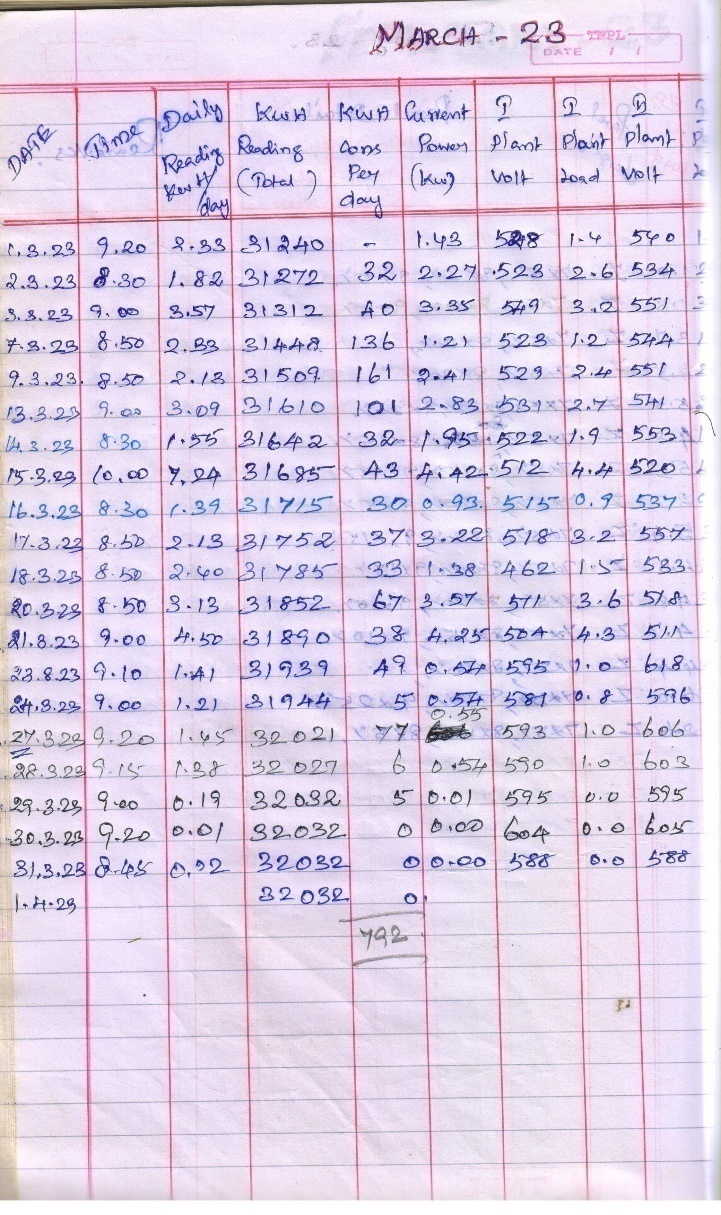 MARCH - 23
TNPL
DATE / /
DATE Time Daily Reading KwH/day KwH Reading (Total) KWH Cons Per day Current Power (Kw) I Plant Volt I Plant Load II Plant Volt
1.3.23 9.20 2.33 31240 - 1.43 528 1.4 540
2.3.23 8.30 1.82 31272 32 2.27 523 2.6 534
3.3.23 9.00 3.57 31312 40 3.35 549 3.2 551
7.3.23 8.50 2.33 31448 136 1.21 523 1.2 544
9.3.23 8.50 2.13 31509 161 2.41 529 2.4 551
13.3.23 9.00 3.09 31610 101 2.83 531 2.7 541
14.3.23 8.30 1.55 31642 32 1.95 522 1.9 553
15.3.23 10.00 7.24 31685 43 4.42 512 4.4 520
16.3.23 8.30 1.39 31715 30 0.93 515 0.9 537
17.3.23 8.50 2.13 31752 37 3.22 518 3.2 557
18.3.23 8.50 2.40 31785 33 1.38 462 1.5 533
20.3.23 8.50 3.13 31852 67 3.57 511 3.6 518
21.3.23 9.00 4.50 31890 38 4.25 504 4.3 511
23.3.23 9.10 1.41 31939 49 0.54 595 1.0 618
24.3.23 9.00 1.21 31944 5 0.54 581 0.8 596
27.3.23 9.20 1.45 32021 77 0.55 593 1.0 606
28.3.23 9.15 1.38 32027 6 0.54 590 1.0 603
29.3.23 9.00 0.19 32032 5 0.01 595 0.0 595
30.3.23 9.20 0.01 32032 0 0.00 604 0.0 605
31.3.23 8.45 0.02 32032 0 0.00 588 0.0 588
1.4.23 32032 0
792